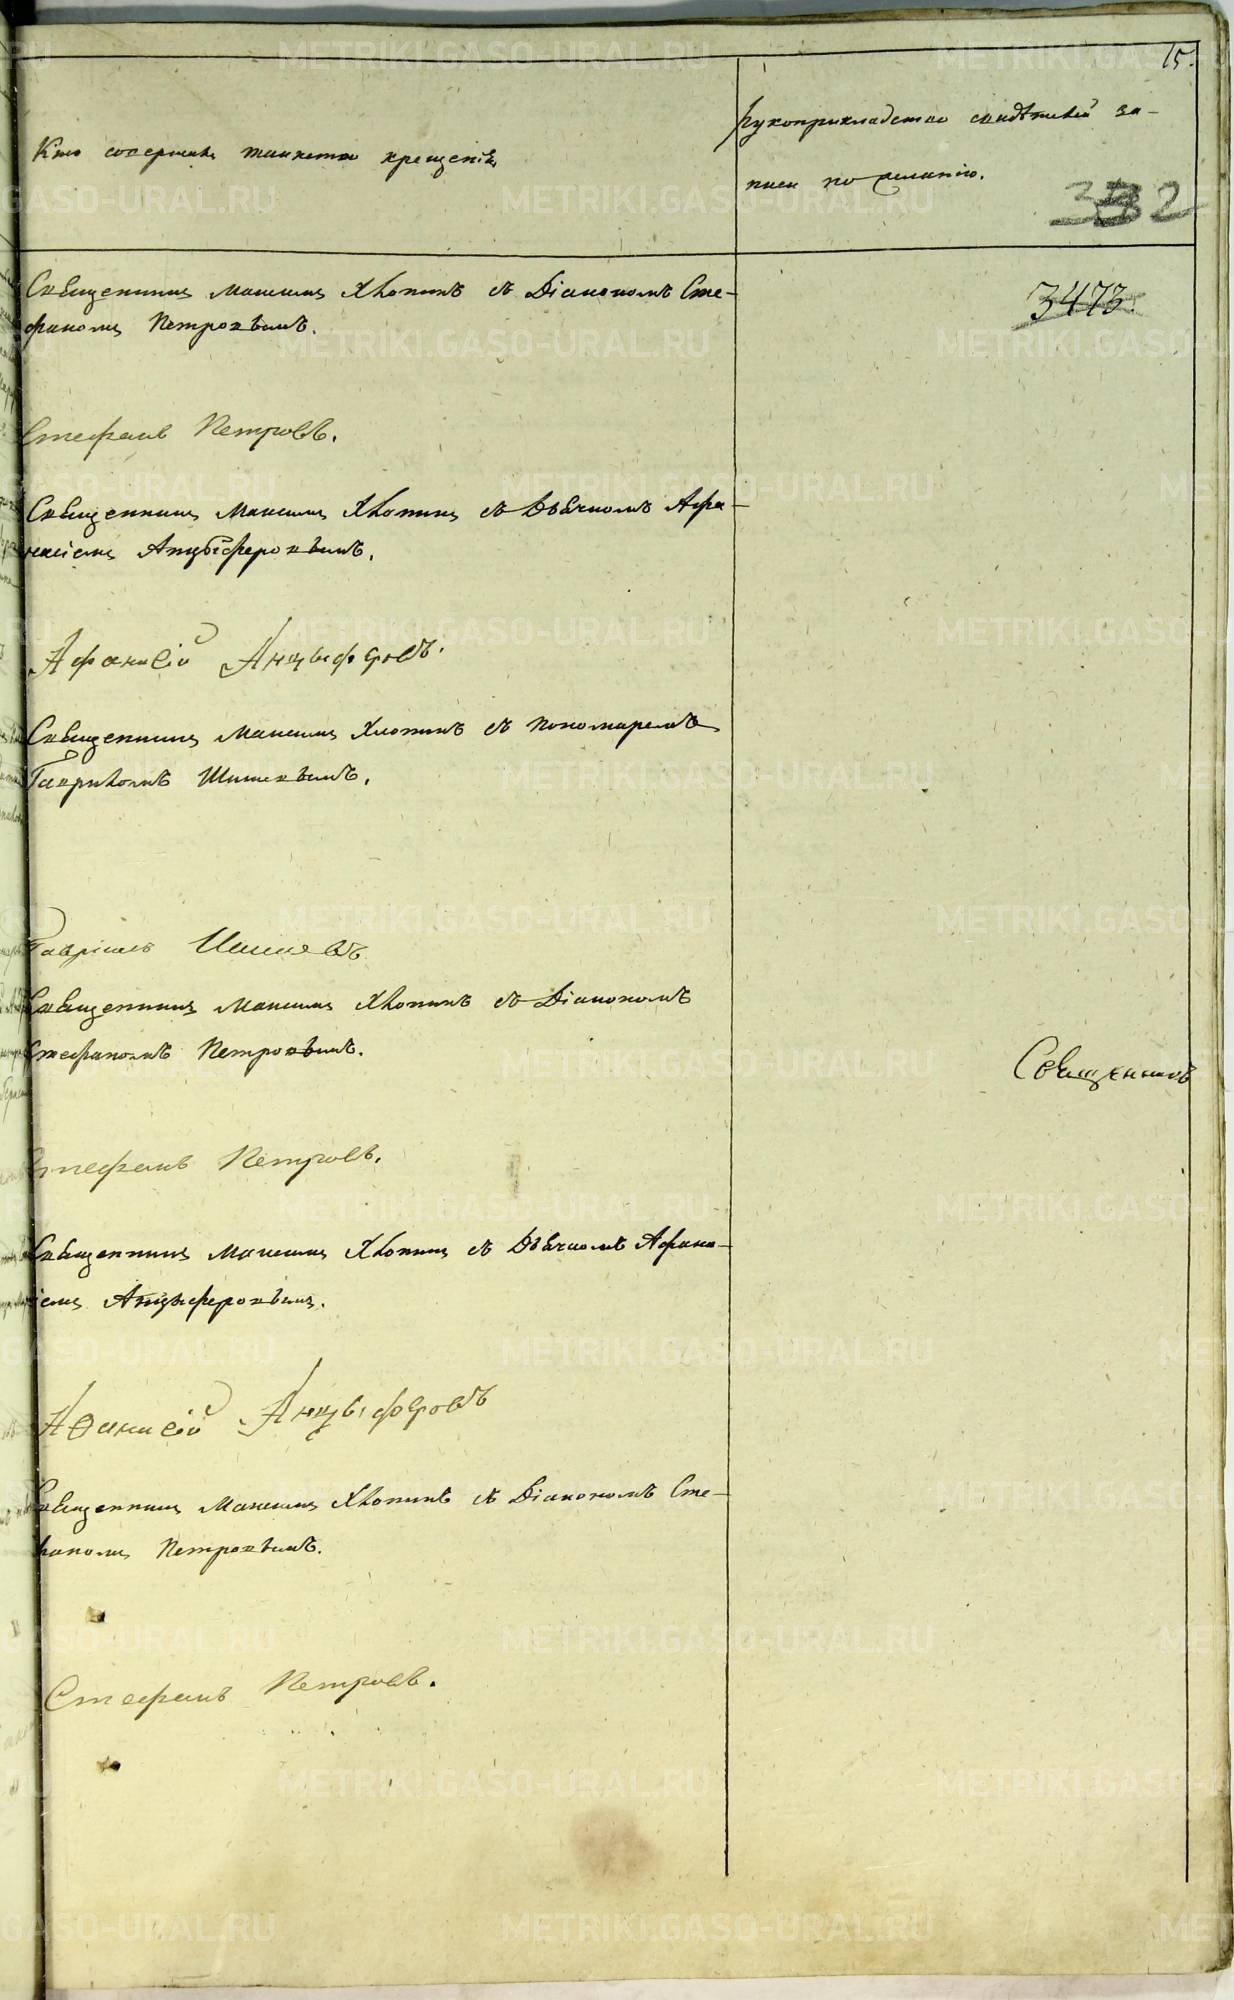 15.
Кто совершалъ таинство крещенія
рукоприкладство свидѣтелей за-
писи по желанію.
332
Священникъ Максимъ Хлопинъ съ Діакономъ Сте-
фаномъ Петровымъ.
3473.
Стефанъ Петровъ.
Священникъ Максимъ Хлопинъ съ Дьячкомъ Афа-
насіемъ Анцыферовымъ.
Афанасій Анцыферовъ.
Священникъ Максимъ Хлопинъ съ пономаремъ
Гавріиломъ Шишевымъ.
Гавріилъ Шишевъ
Священникъ Максимъ Хлопинъ съ Діакономъ
Стефаномъ Петровымъ.
Священникъ
Стефанъ Петровъ.
Священникъ Максимъ Хлопинъ съ Дьячкомъ Афана-
сіемъ Анцыферовымъ.
Аѳанасій Анцыфоровъ
Священникъ Максимъ Хлопинъ съ Діакономъ Сте-
фаномъ Петровымъ.
Стефанъ Петровъ.
METRIKI.GASO-URAL.RU